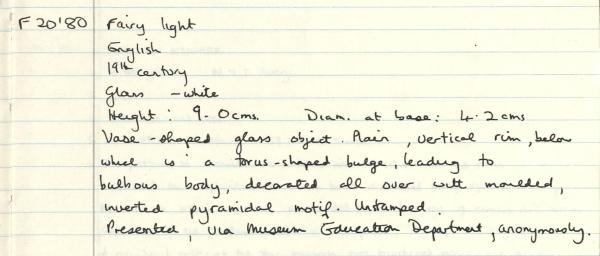 F 20'80 Fairy light
English
19th century
Glass - white
Height: 9.0cms. Diam. at base: 4.2cms
Vase-shaped glass object. Plain, vertical rim, below
which is a torus-shaped bulge, leading to
bulbous body, decorated all over with moulded,
inverted pyramidal motif. Unstamped.
Presented, via Museum Education Department, anonymously.